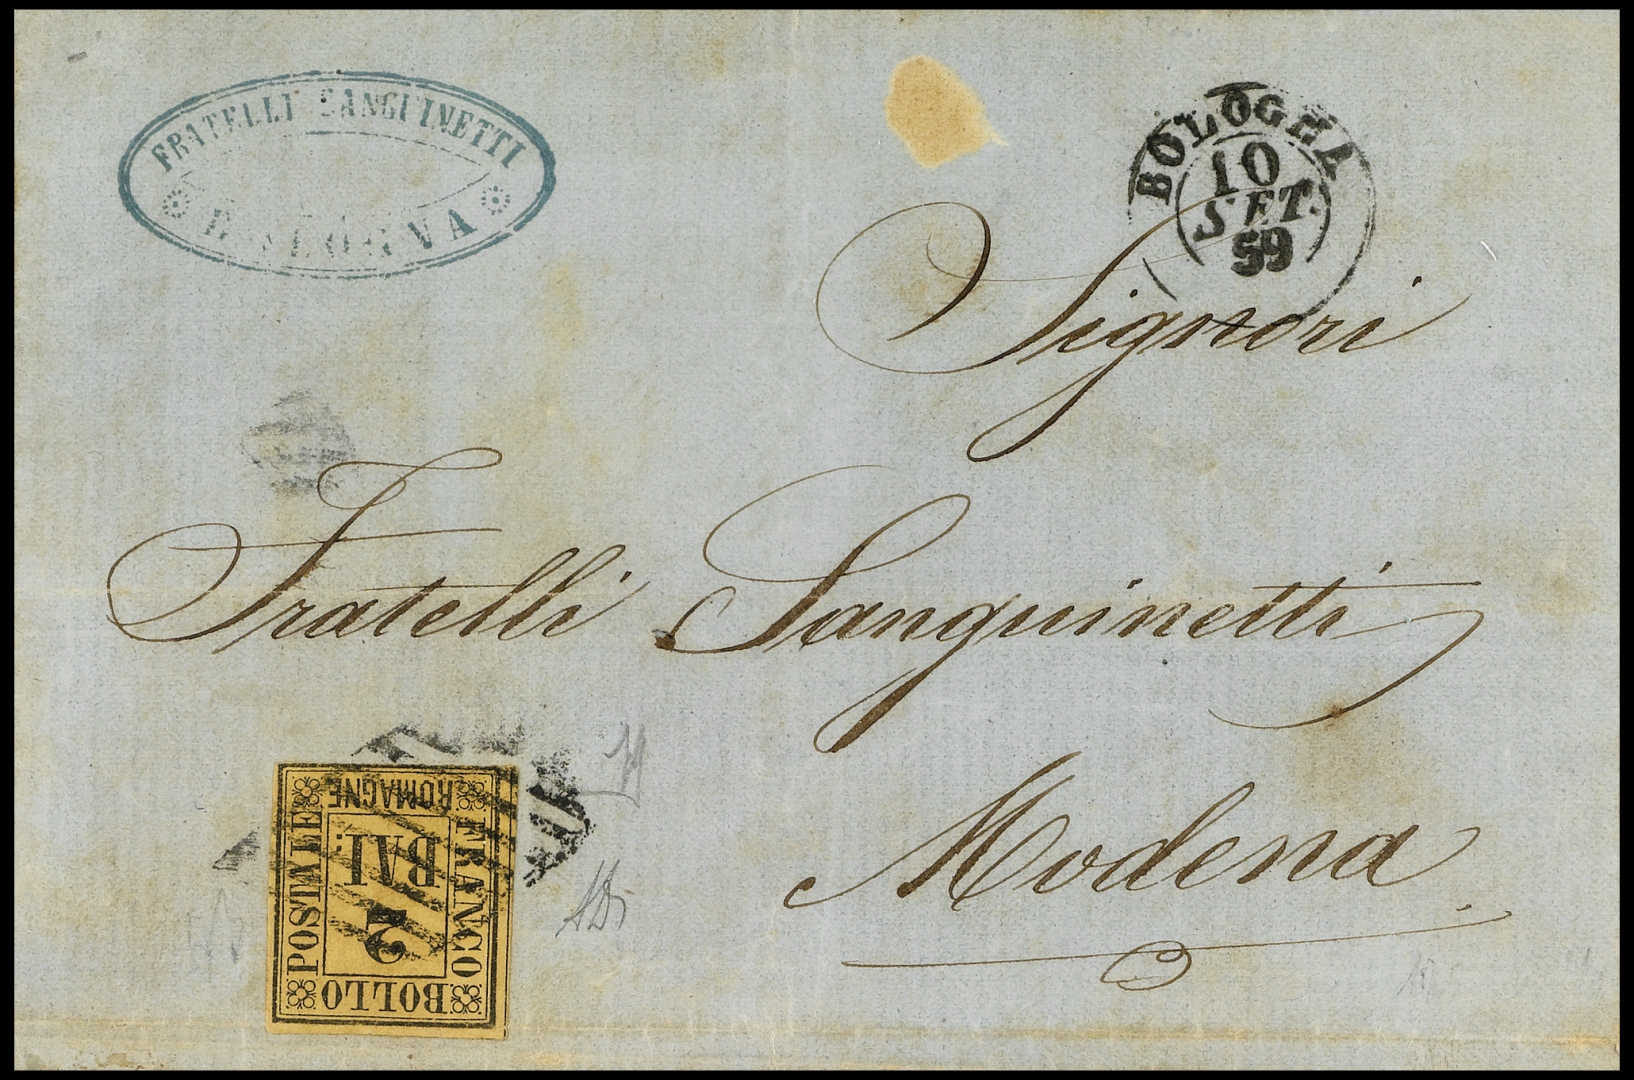 FRATELLI SANGUINETTI
BOLOGNA
BOLOGNA
10
SET.
59
Signori
Fratelli Sanguinetti
Modena
FRANCO
BOLLO
POSTALE
ROMAGNE
BAI:
2